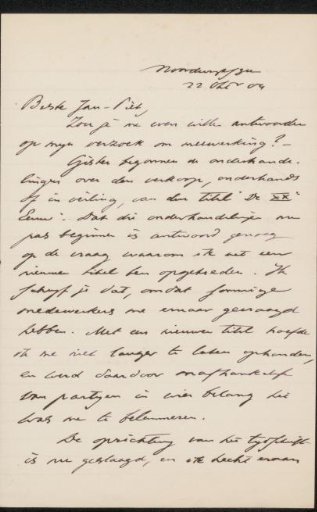 Noordwijk/Zee
22 Octr 09
Beste Jan-Piet,
Zou je me even willen antwoorden
op mijn verzoek om medewerking? -
Gister begonnen de onderhande-
lingen over den verkoop, onderhands
of in veiling, van den titel "De XXe
Eeuw". Dat die onderhandelingen nu
pas beginnen is antwoord genoeg
op de vraag waarom ik niet een
nieuwe titel ben opgetreden. Ik
schrijf je dat, omdat sommige
medewerkers me ernaar gevraagd
hebben. Met een nieuwen titel hoefde
ik me niet langer te laten ophouden,
en werd daardoor onafhankelijk
van partijen in wier belang het
was me te belemmeren.
De oprichting van het tijdschrift
is nu geslaagd, en ik hecht eraan